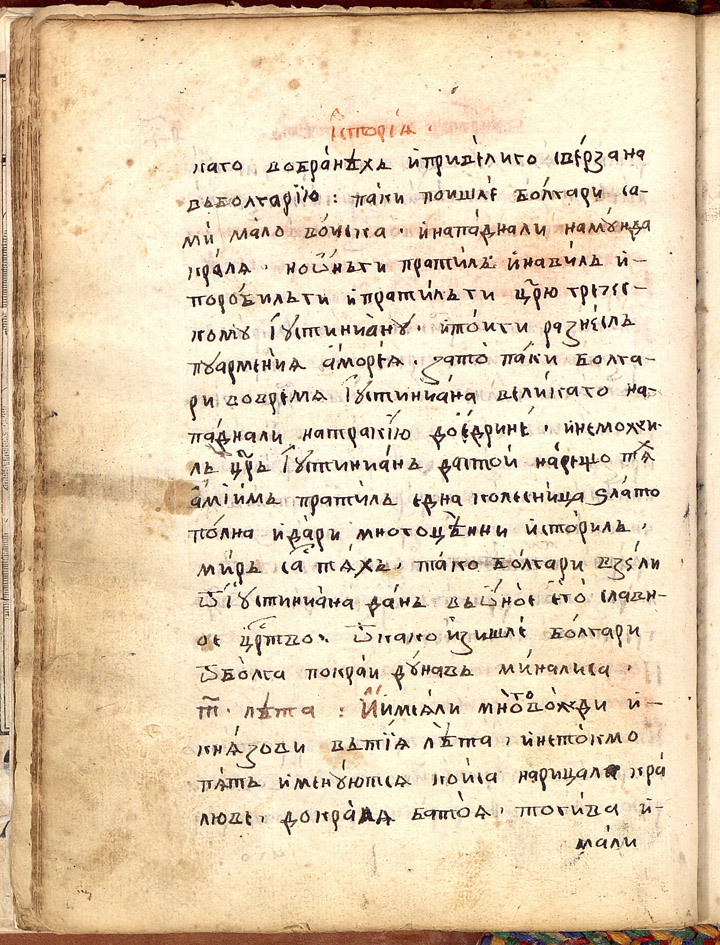 їсторїа.
като вобранѣхъ и привели го свѣрзана
въ Болгарїю : паки поишлѐ Болгари са-
ми мало воиска. и нападнали на Мунда
краля. но ѡнъ ги пратилъ и навилъ и-
поробилъ ги и пратилъ ги цр҃ю гречес-
кому Їустинїану. и тои ги разнеслъ
пу Армения Амореа. зато паки Болга-
ри во время Їустинїана великаго на-
паднали на Тракїю до Едрине. и не може-
лъ цр҃ь Їустинїанъ да стои нарещо тѧх
а м им пратилъ една колесница ѕлато
полна и дари многоцѣнни и сторилъ.
миръ са тѧхъ. тако Болгари взели
ѿ Їустинїана данъ въ ѡное его славн-
ое цр҃тво. ѿкако изишлѐ Болгари
ѿ Болга покраи Дунавъ миналиса.
т҃п. лѣта : И имеали много вожди и-
кнѧзови въ тїѧ лѣта. и не токмо
пѧть именуютсѧ коиса нарицале кра
люве. до краля Батоа. тогива и-
мали